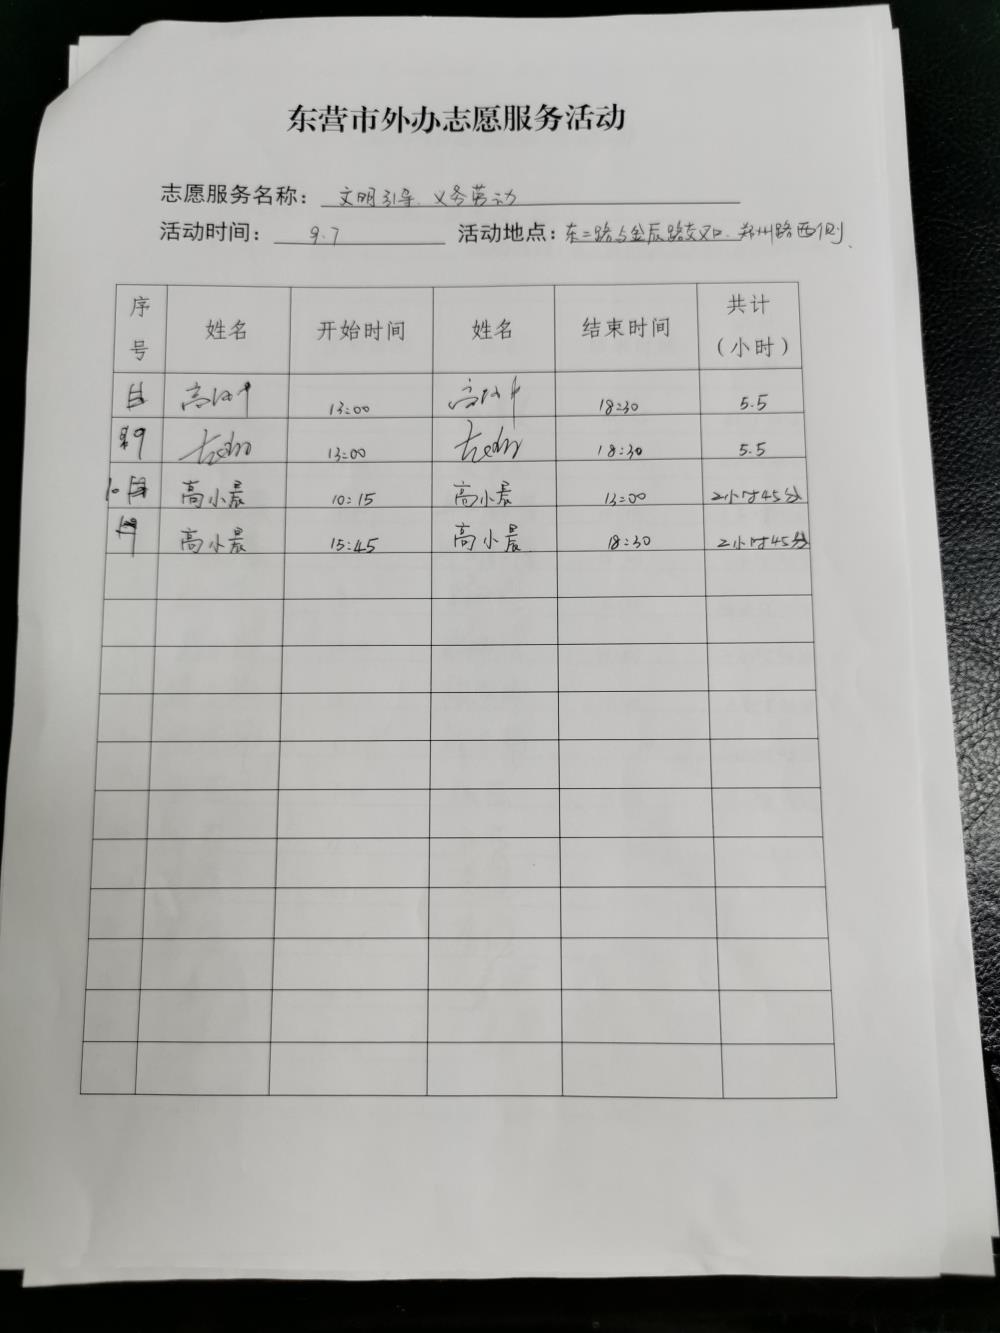 东营市外办志愿服务活动
志愿服务名称：文明引导、义务劳动
活动时间：9.7 活动地点：东二路与金辰路交叉口、郑州路西侧、
序号 姓名 开始时间 姓名 结束时间 共计（小时）
13:00 18:30 5.5
9 13:00 18:30 5.5
10 高小晨 10:15 高小晨 13:00 2小时45分
高小晨 15:45 高小晨 18:30 2小时45分